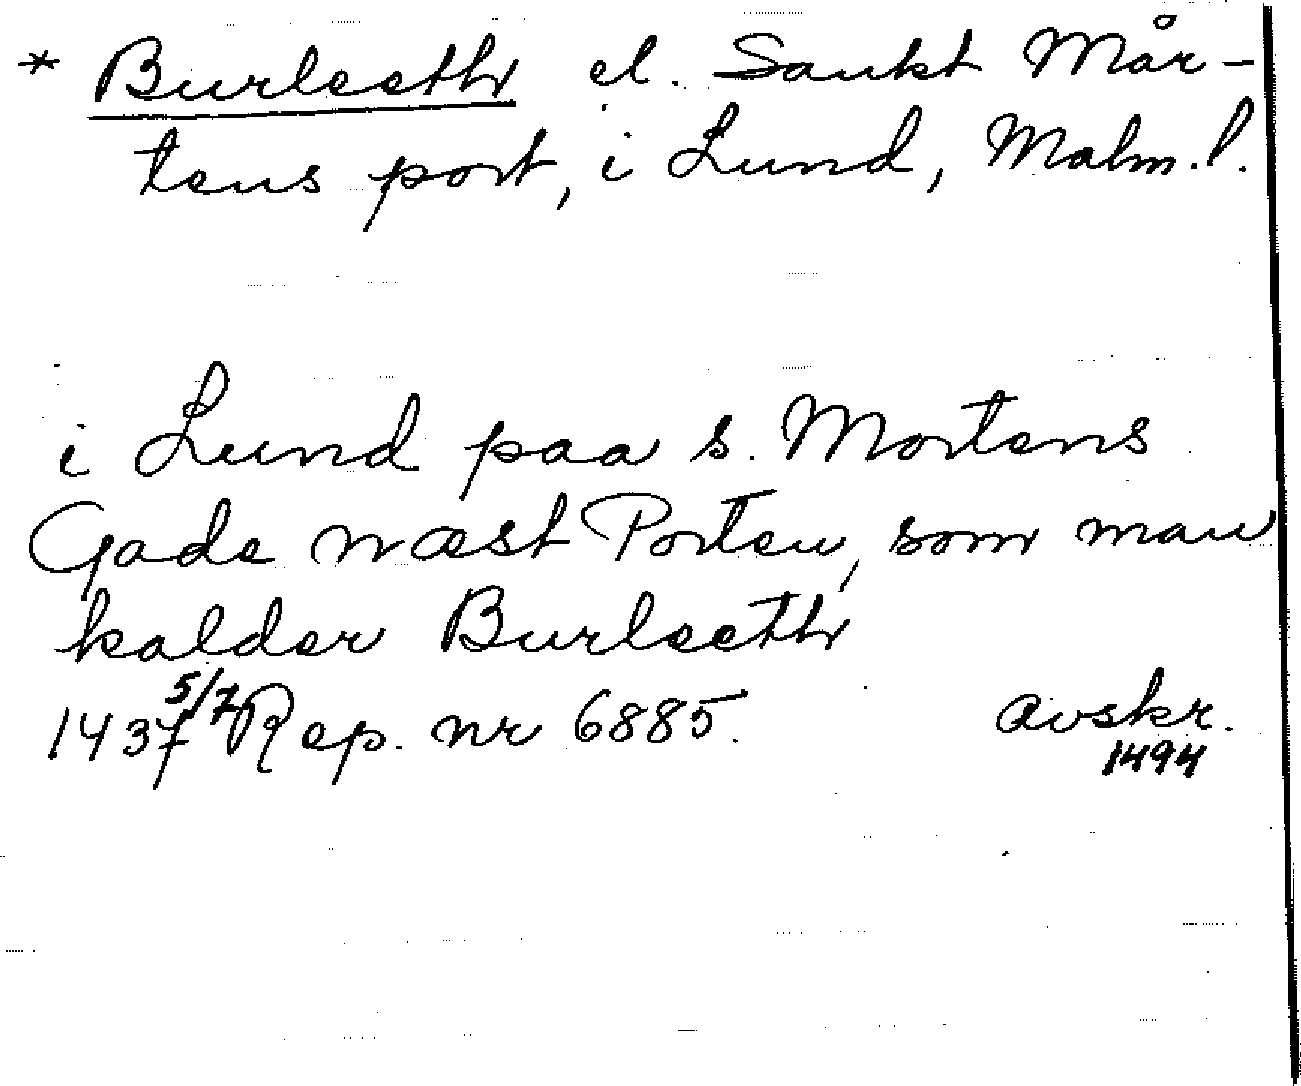 * Burleeth el. Sankt Mår-
tens port, i Lund, Malm. l.
i Lund paa s. Mortens
Gade næst Porten, som man
kalder Burleeth
1437 5/7 Rep. nr 6885. avskr.
1494